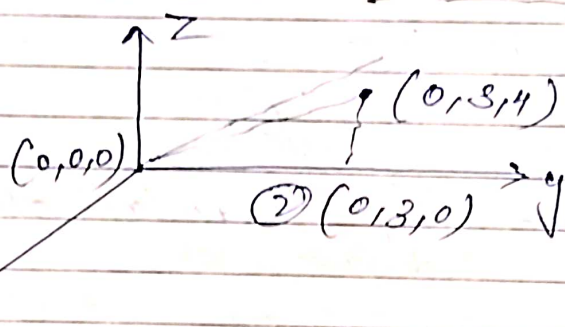 Z
(0,3,4)
(0,0,0)
y
② (0,3,0)